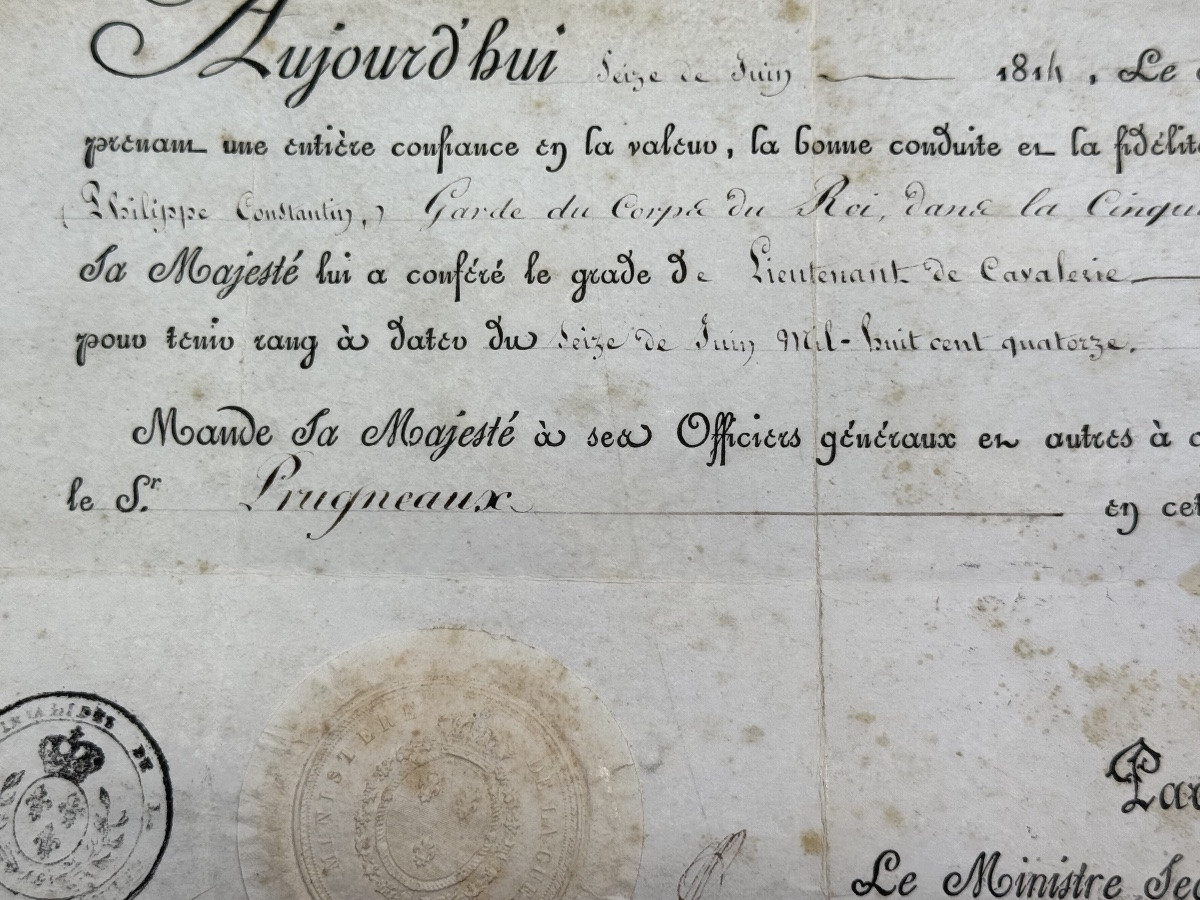 Aujourd'hui Seize de Juin 1814, Le
prenant une entière confiance en la valeur, la bonne conduite et la fidélité
(Philippe Constantin,) Garde du Corps du Roi, dans la Cinqu
Sa Majesté lui a conféré le grade de Lieutenant de Cavalerie
pour tenir rang à dater du Seize de Juin Mil-huit cent quatorze.
Mande Sa Majesté à ses Officiers généraux et autres à
le Sr. Prugneaux en cet
MINISTERE DE LA GUE
DE
Par
Le Ministre Sec